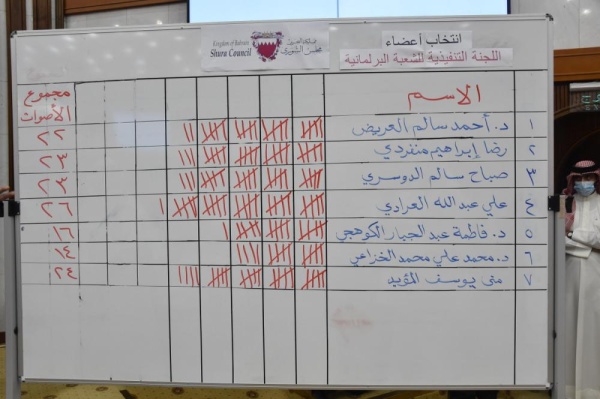 انتخاب أعضاء
اللجنة التنفيذية للشعبة البرلمانية
Kingdom of Bahrain
Shura Council
مملكة البحرين
مجلس الشورى
الاسم
مجموع الأصوات
١ د. أحمد سالم العريض ٢٢
٢ رضا إبراهيم منفردي ٢٣
٣ صباح سالم الدوسري ٢٣
٤ علي عبدالله العرادي ٢٦
٥ د. فاطمة عبد الجبار الكوهجي ١٦
٦ د. محمد علي محمد الخزاعي ١٤
٧ منى يوسف المؤيد ٢٤